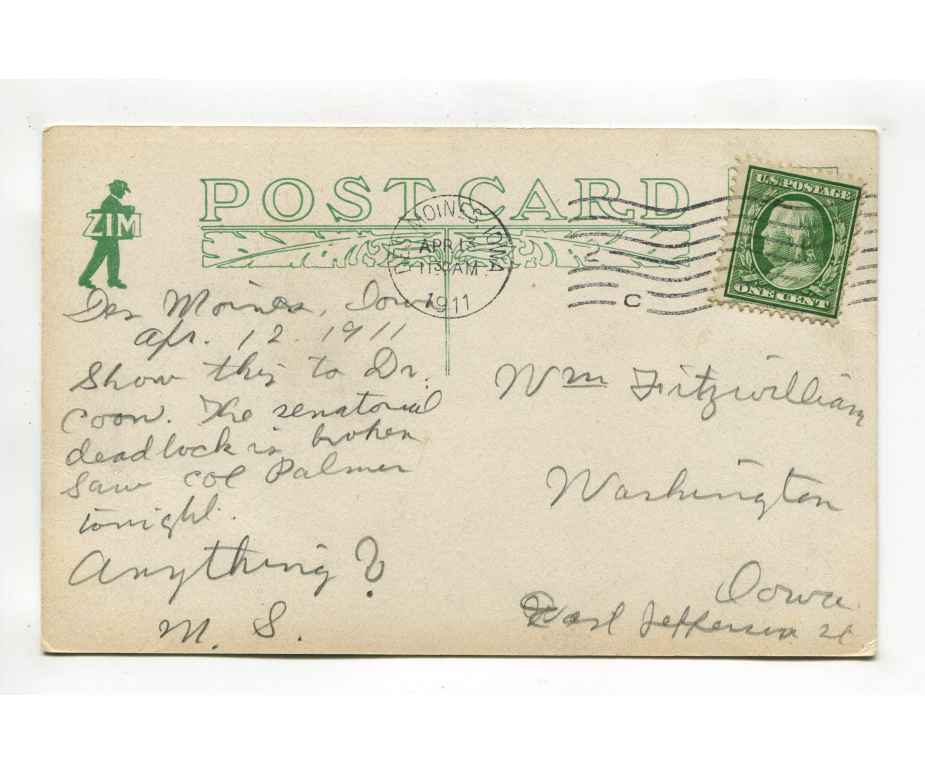 POST CARD
ZIM
DES MOINES, IOWA
APR 13
11 30 AM
1911
C
U.S. POSTAGE
ONE CENT
Des Moines, Iowa
Apr. 12. 1911
Show this to Dr.
Coon. The senatorial
deadlock is broken
Saw Col Palmer
tonight.
Anything?
M. S.
Wm Fitzwilliam
Washington
Iowa
Jefferson st